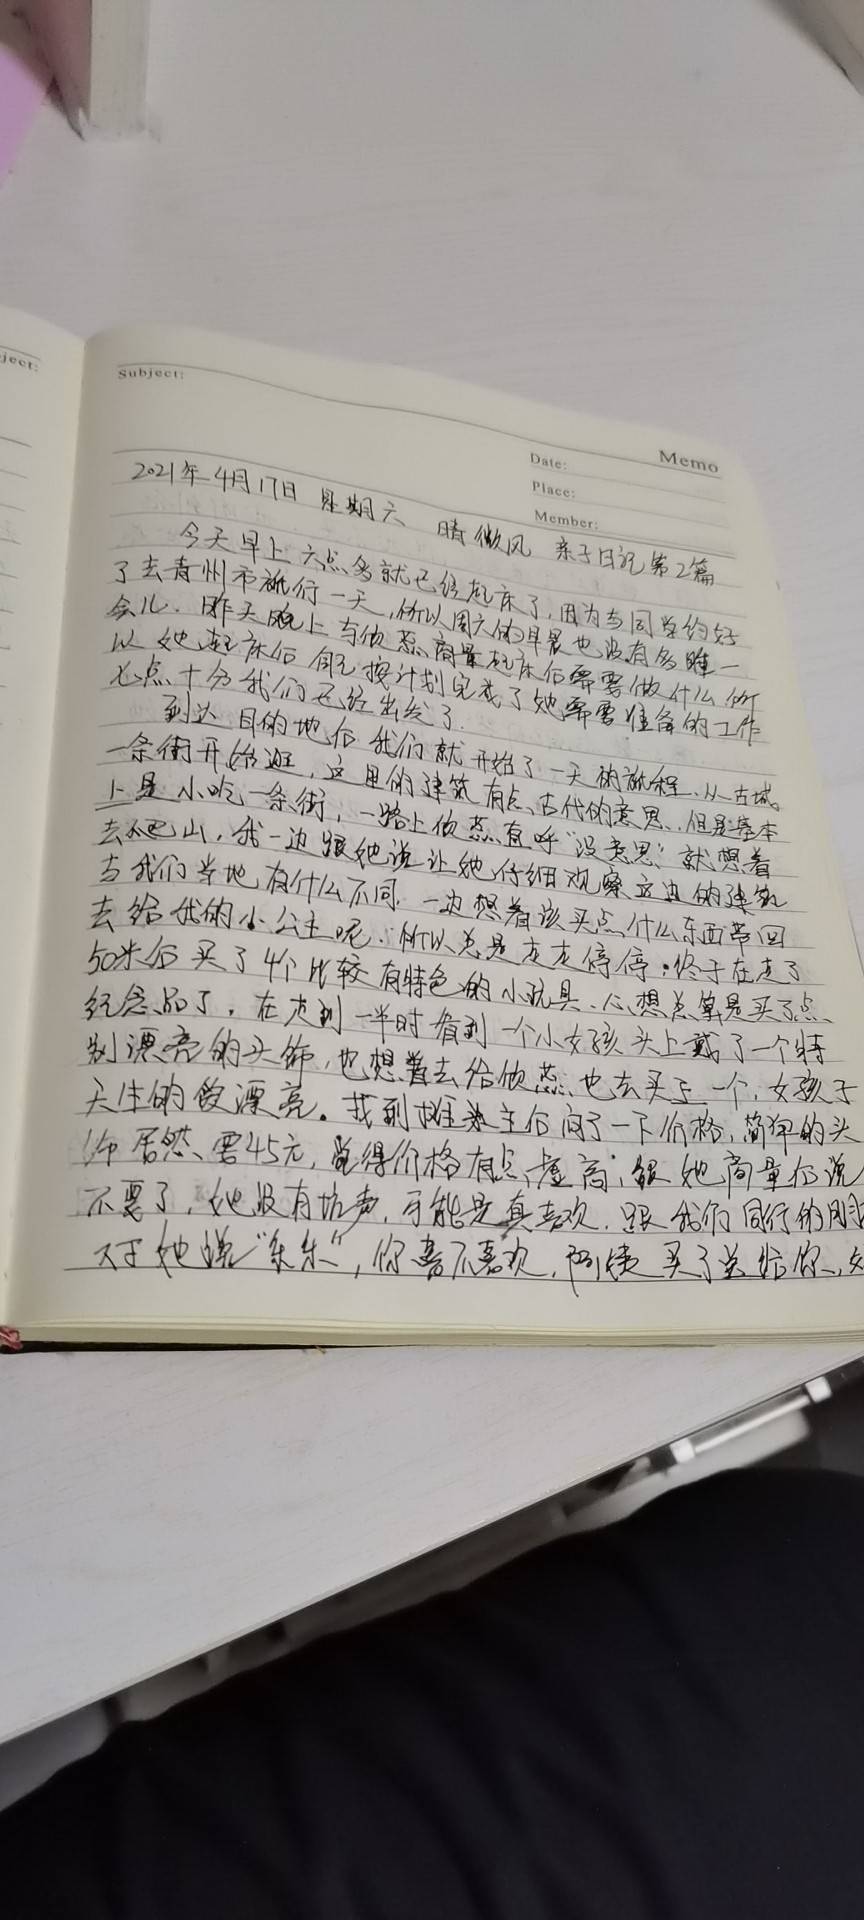 ject:
Subject:
Memo
Date:
Place:
Member:
2021年4月17日 星期六 晴 微风 亲子日记第2篇
今天早上六点多就已经起床了,因为与同学约好
了去青州市旅行一天,所以周六的早晨也没有多睡一
会儿.昨天晚上与依燕商量起床后需要做什么所
以她起床后自己按计划完成了她需要准备的工作
七点十分我们已经出发了.
到达目的地后我们就开始了一天的旅程.从古城
一条街开始逛,这里的建筑有点古代的意思.但是基本
上是小吃一条街,一路上依燕直呼“没意思”就想着
去爬山,我一边跟她说让她仔细观察这边的建筑
与我们当地有什么不同.一边想着该买点什么东西带回
去给我的小公主呢.所以总是走走停停.终于在走了
50米后买了4个比较有特色的小玩具.心想总算是买了点
纪念品了.在走到一半时看到一个小女孩头上戴了一个特
别漂亮的头饰,也想着去给依燕也去买上一个,女孩子
天生的爱漂亮。找到摊主后问了一下价格,简单的头
饰居然要45元,觉得价格有点虚高,跟她商量后说
不要了,她没有吭声,可能是真喜欢.跟我们同行的朋
对她说“乐乐”,你喜不喜欢,阿姨买了送给你,